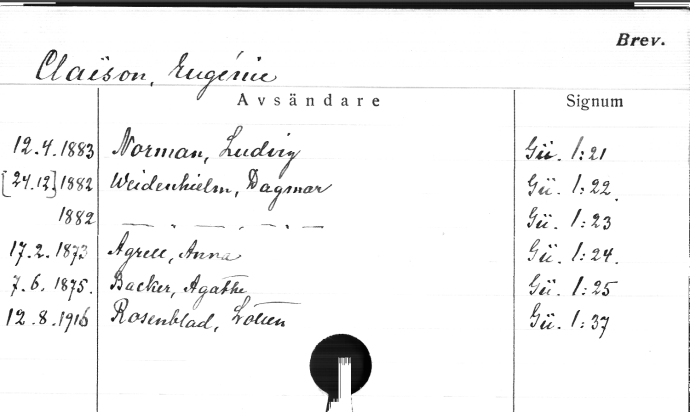 Brev.
Claëson, Eugénie
Avsändare Signum
12.4.1883 Norman, Ludvig Gü. 1:21
[24.12] 1882 Weidenhielm, Dagmar Gü. 1:22.
1882 — „ — , — „ — Gü. 1:23
17.2.1873 Agrell, Anna Gü. 1:24.
7.6.1875. Backer, Agathe Gü. 1:25
12.8.1916 Rosenblad, Lotten Gü. 1:37